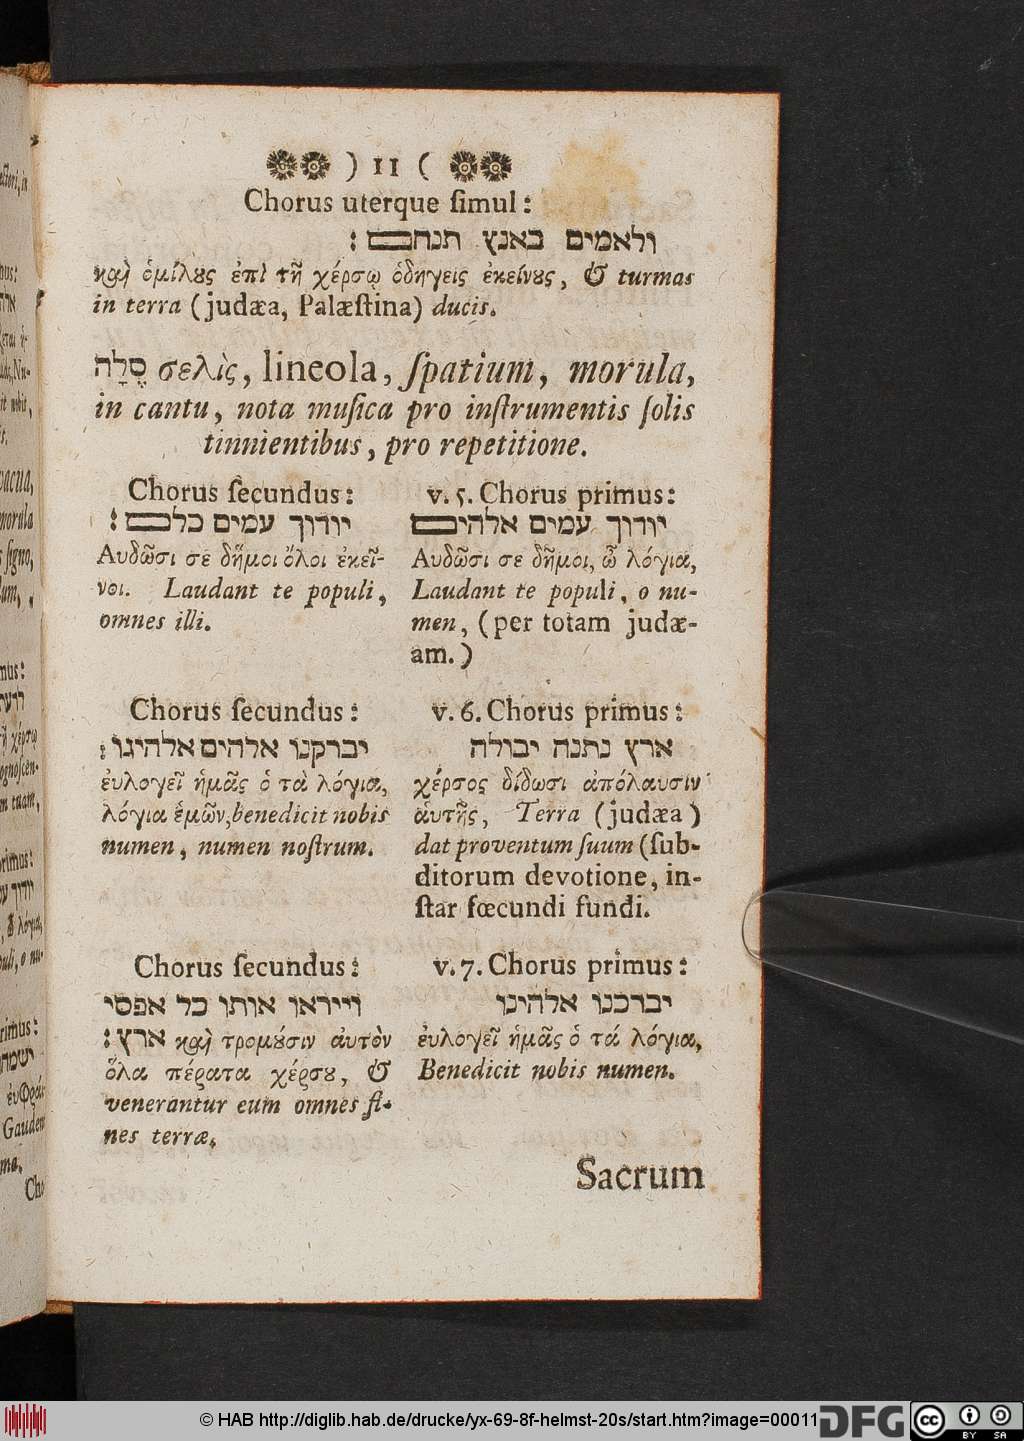 ) 11 (
Chorus uterque ſimul:
ולאמים באנץ תנחם:
καὶ ὁμίλȣς ἐπὶ τῇ χέρσῳ ὁδηγεις ἐκείνȣς, & turmas
in terra (judæa, Palæſtina) ducis.
סֶלָה σελὶς, lineola, ſpatium, morula,
in cantu, nota muſica pro inſtrumentis ſolis
tinnientibus, pro repetitione.
v. 5. Chorus primus:
יודוך עמים אלהים
Αυδῶσι σε δῆμοι, ὦ λόγια,
Laudant te populi, o nu-
men, (per totam judæ-
am.)
Chorus ſecundus:
יודוך עמים כלם:
Αυδῶσι σε δῆμοι ὅλοι ἐκεῖ-
νοι. Laudant te populi,
omnes illi.
v. 6. Chorus primus:
ארץ נתנה יבולה
χέρσος δίδωσι ἀπόλαυσιν
ἁυτῆς, Terra (judæa)
dat proventum ſuum (ſub-
ditorum devotione, in-
ſtar fœcundi fundi.
Chorus ſecundus:
יברקנו אלהים אלהינו:
ἐυλογεῖ ἡμᾶς ὁ τὰ λόγια,
λόγια ἑμῶν, benedicit nobis
numen, numen noſtrum.
v. 7. Chorus primus:
יברכנו אלהינו
ἐυλογεῖ ἡμᾶς ὁ τά λόγια,
Benedicit nobis numen.
Chorus ſecundus:
וייראו אותו כל אפסי
ארץ: καὶ τρομȣσιν ἀυτὸν
ὅλα πέρατα χέρσȣ, &
venerantur eum omnes fi-
nes terræ.
Sacrum
© HAB http://diglib.hab.de/drucke/yx-69-8f-helmst-20s/start.htm?image=00011
DFG
cc BY SA